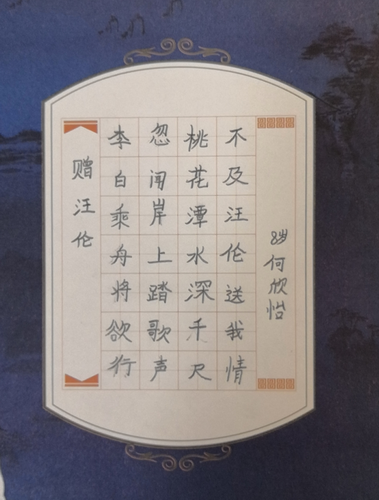 赠汪伦
李白乘舟将欲行
忽闻岸上踏歌声
桃花潭水深千尺
不及汪伦送我情
8岁何欣怡